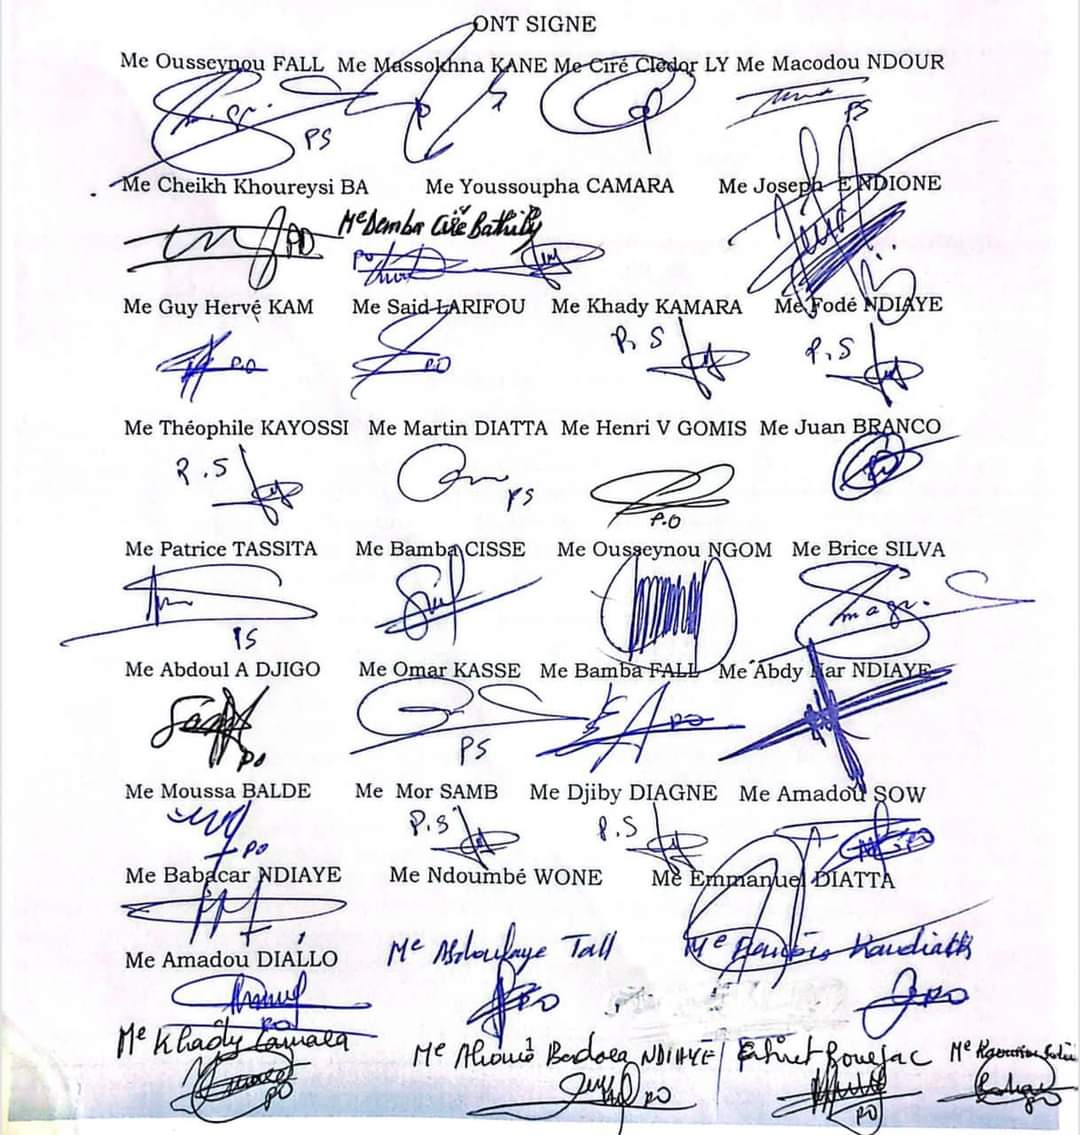 ONT SIGNE
Me Ousseynou FALL Me Massokhna KANE Me Ciré Clédor LY Me Macodou NDOUR
PS PS
Me Cheikh Khoureysi BA Me Youssoupha CAMARA Me Joseph E NDIONE
Me Bamba Cire Bathily
PO PO
Me Guy Hervé KAM Me Said LARIFOU Me Khady KAMARA Me Fodé NDIAYE
PO PO P.S P.S
Me Théophile KAYOSSI Me Martin DIATTA Me Henri V GOMIS Me Juan BRANCO
P.S PS P.O
Me Patrice TASSITA Me Bamba CISSE Me Ousseynou NGOM Me Brice SILVA
PS
Me Abdoul A DJIGO Me Omar KASSE Me Bamba FALL Me Abdy Nar NDIAYE
PO PS PO
Me Moussa BALDE Me Mor SAMB Me Djiby DIAGNE Me Amadou SOW
PO P.S P.S PO
Me Babacar NDIAYE Me Ndoumbé WONE Me Emmanuel DIATTA
Me Amadou DIALLO Me Abdoulaye Tall Me
PO PO PO
Me Khady Camara
Me Alioune Badara NDIAYE Me
PO PO PO